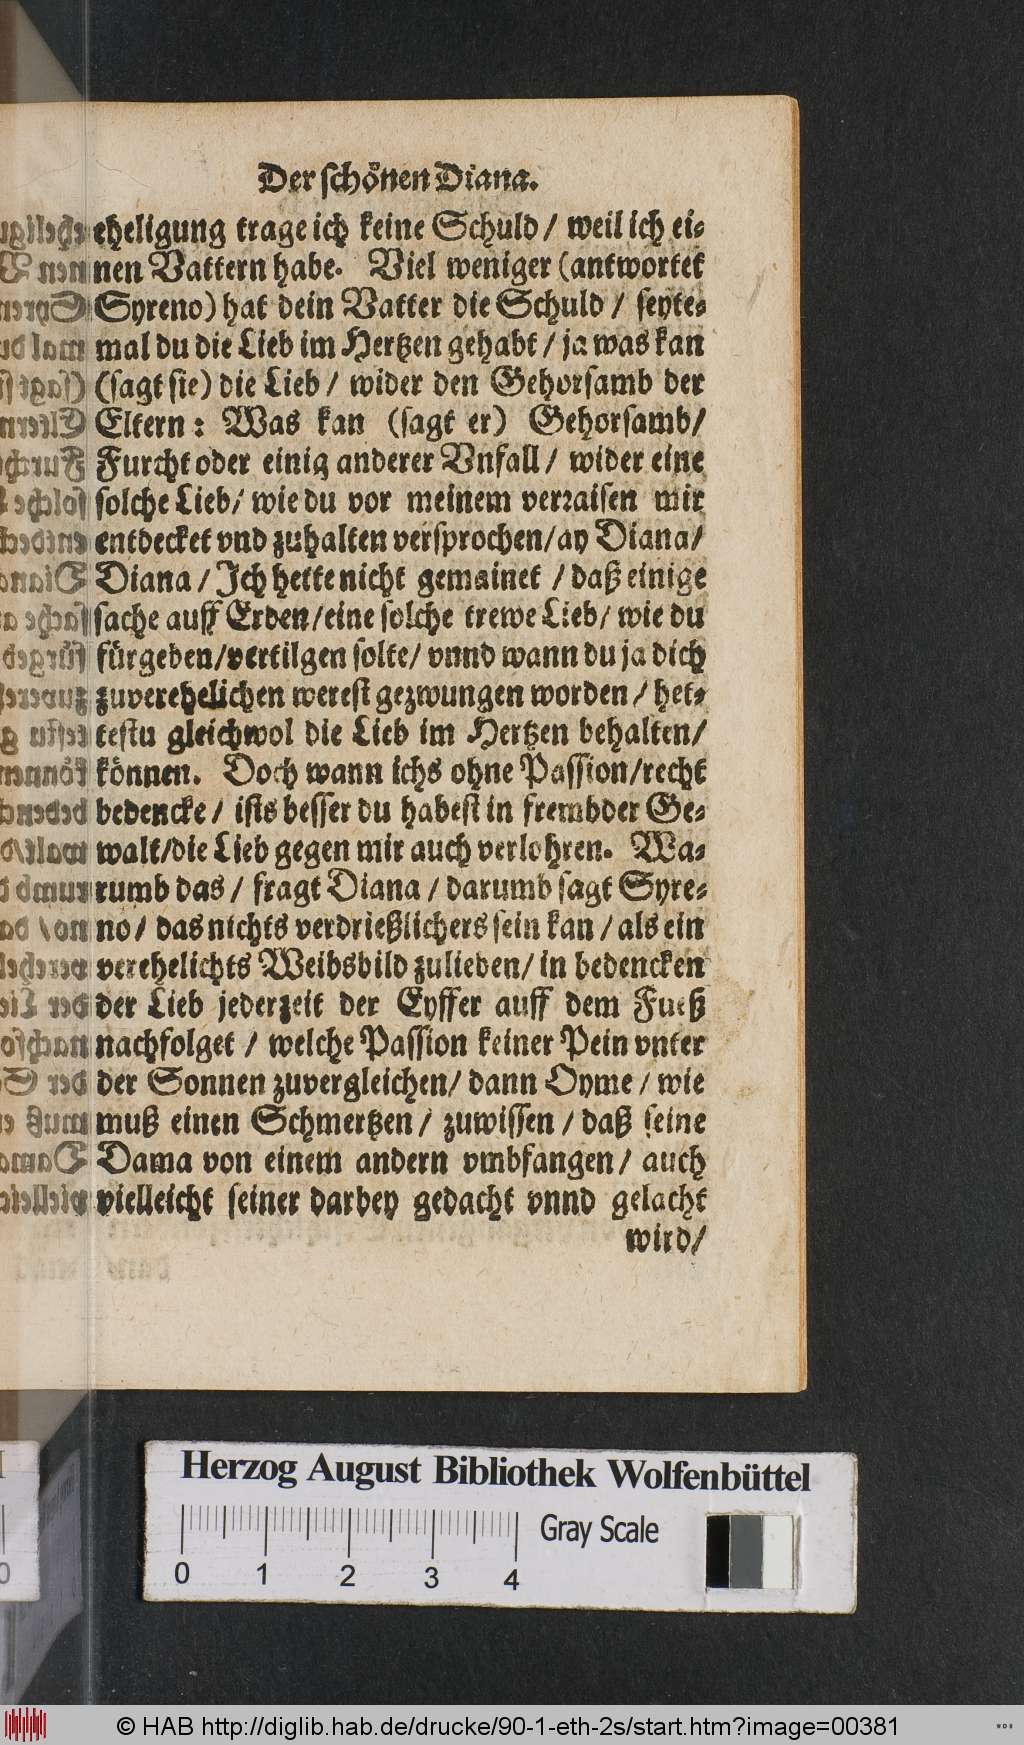 Der schönen Diana.
eheligung trage ich keine Schuld / weil ich ei-
nen Vattern habe. Viel weniger (antwortet
Syreno) hat dein Vatter die Schuld / seyte-
mal du die Lieb im Hertzen gehabt / ja was kan
(sagt sie) die Lieb / wider den Gehorsamb der
Eltern: Was kan (sagt er) Gehorsamb/
Furcht oder einig anderer Vnfall / wider eine
solche Lieb/ wie du vor meinem verraisen mir
entdecket vnd zuhalten versprochen/ay Diana/
Diana / Ich hette nicht gemainet / daß einige
sache auff Erden/eine solche trewe Lieb/ wie du
fürgeben/vertilgen solte/ vnnd wann du ja dich
zuverehelichen werest gezwungen worden / het-
testu gleichwol die Lieb im Hertzen behalten/
können. Doch wann ichs ohne Passion/recht
bedencke / ists besser du habest in frembder Ge-
walt/die Lieb gegen mir auch verlohren. Wa-
rumb das / fragt Diana / darumb sagt Syre-
no / das nichts verdrießlichers sein kan / als ein
verehelichts Weibsbild zulieben/ in bedencken
der Lieb jederzeit der Eyffer auff dem Fueß
nachfolget / welche Passion keiner Pein vnter
der Sonnen zuvergleichen/ dann Oyme / wie
muß einen Schmertzen / zuwissen / daß seine
Dama von einem andern vmbfangen / auch
vielleicht seiner darbey gedacht vnnd gelacht
wird/
Herzog August Bibliothek Wolfenbüttel
0 1 2 3 4 Gray Scale
© HAB http://diglib.hab.de/drucke/90-1-eth-2s/start.htm?image=00381